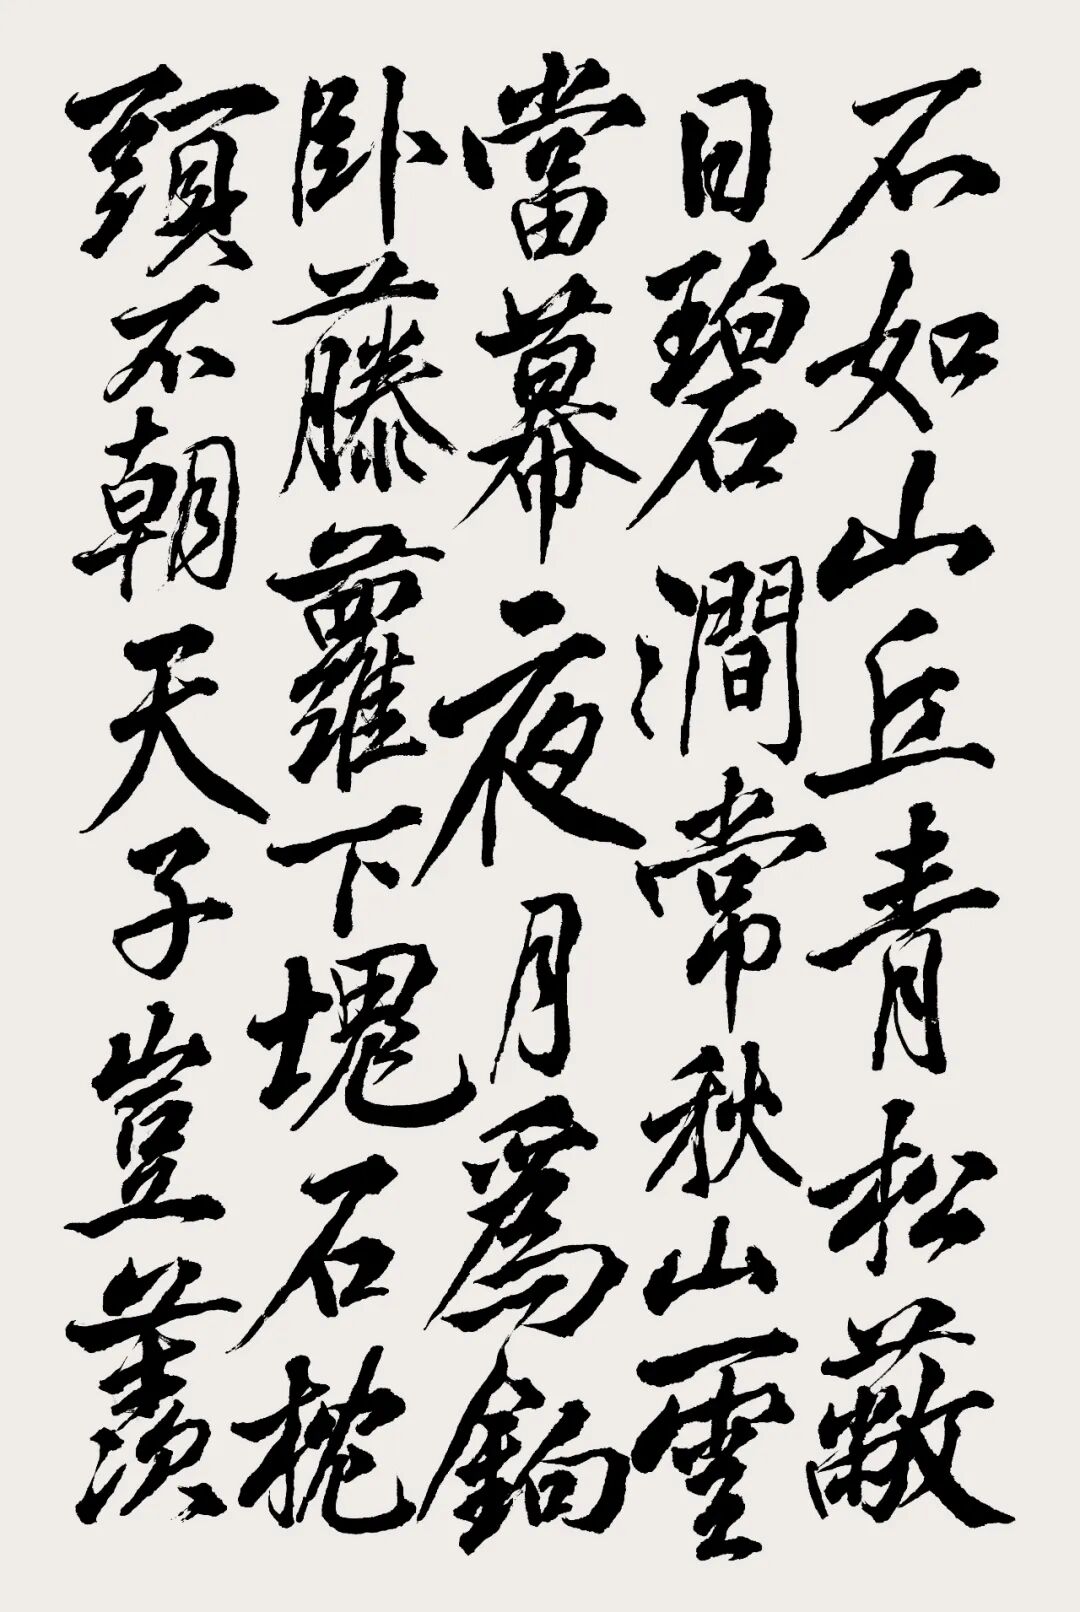 不如山丘青松蔽
日碧澗常秋山雲
當幕夜月為鉤
臥藤蘿下塊石枕
頭不朝天子豈羨